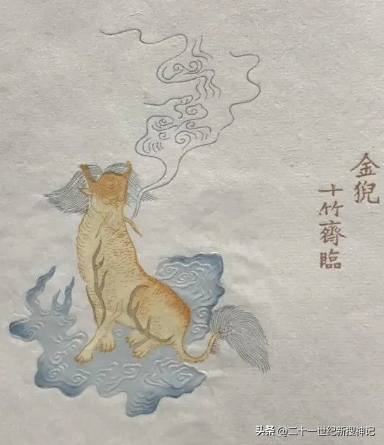 金猊
十竹齋臨
头条 @二十一世纪新搜神记